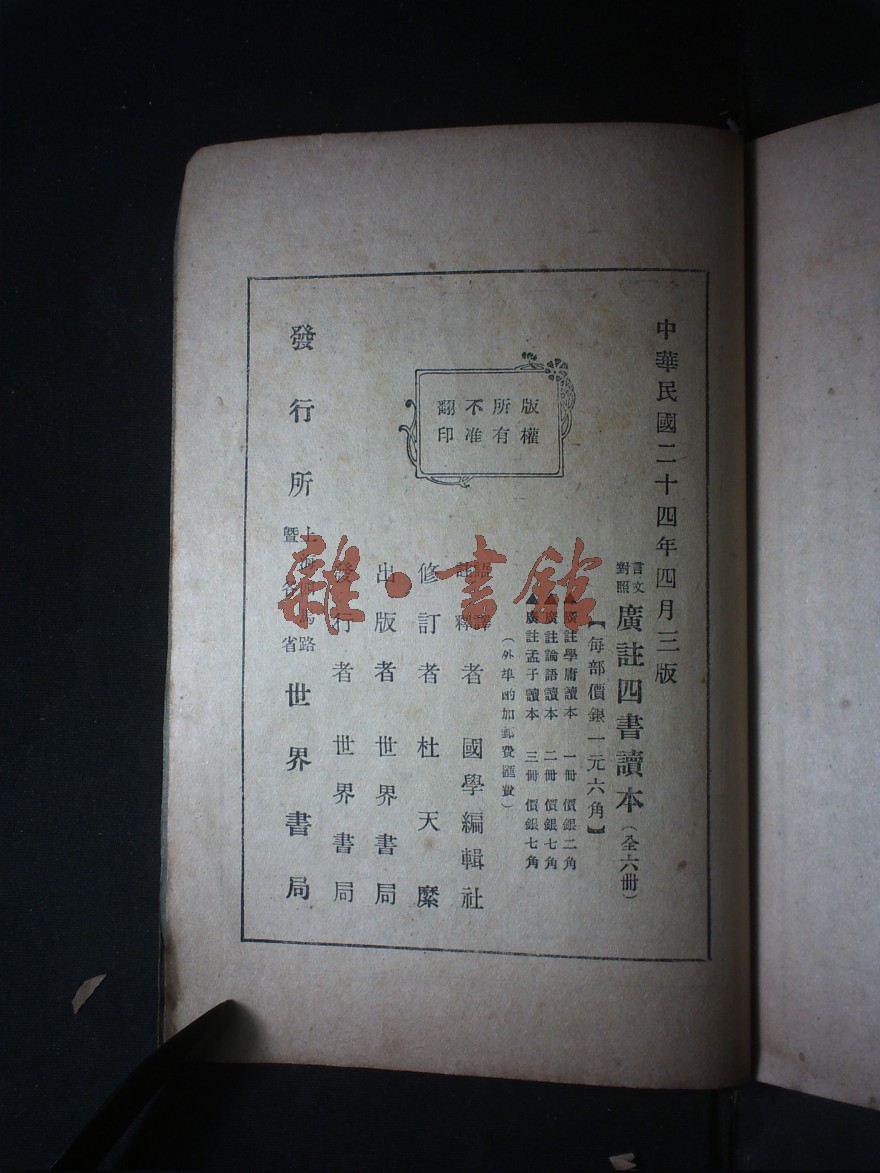 中華民國二十四年四月三版
言文對照 廣註四書讀本(全六冊)
【每部價銀一元六角】
▲廣註學庸讀本 一冊 價銀二角
▲廣註論語讀本 二冊 價銀七角
▲廣註孟子讀本 三冊 價銀七角
(外埠酌加郵費匯費)
版權
所有
不准
翻印
語譯註釋者 國學編輯社
修訂者 杜天縻
出版者 世界書局
發行者 世界書局
發行所 上海四馬路暨各省 世界書局
雜·書館